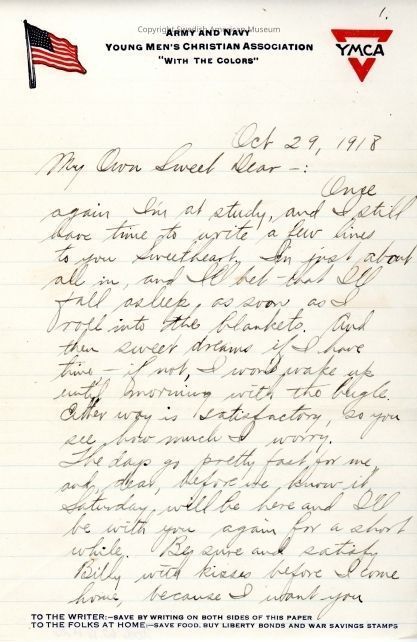 1.
Copyright Swedish American Museum
ARMY AND NAVY
YOUNG MEN'S CHRISTIAN ASSOCIATION
"WITH THE COLORS"
YMCA
Oct 29, 1918
My Own Sweet Dear -:
Once
again I'm at study, and I still
have time to write a few lines
to you sweetheart. I'm just about
all in, and I'll bet that I'll
fall asleep, as soon as I
roll into the blankets. And
then sweet dreams if I have
time - if not, I won't wake up
until morning with the bugle.
Either way is satisfactory, so you
see how much I worry.
The days go pretty fast for me,
and, dear, before we know it
Saturday will be here and I'll
be with you again for a short
while. Be sure and satisfy
Billy with kisses before I come
home, because I want you
TO THE WRITER:—SAVE BY WRITING ON BOTH SIDES OF THIS PAPER
TO THE FOLKS AT HOME:—SAVE FOOD, BUY LIBERTY BONDS AND WAR SAVINGS STAMPS